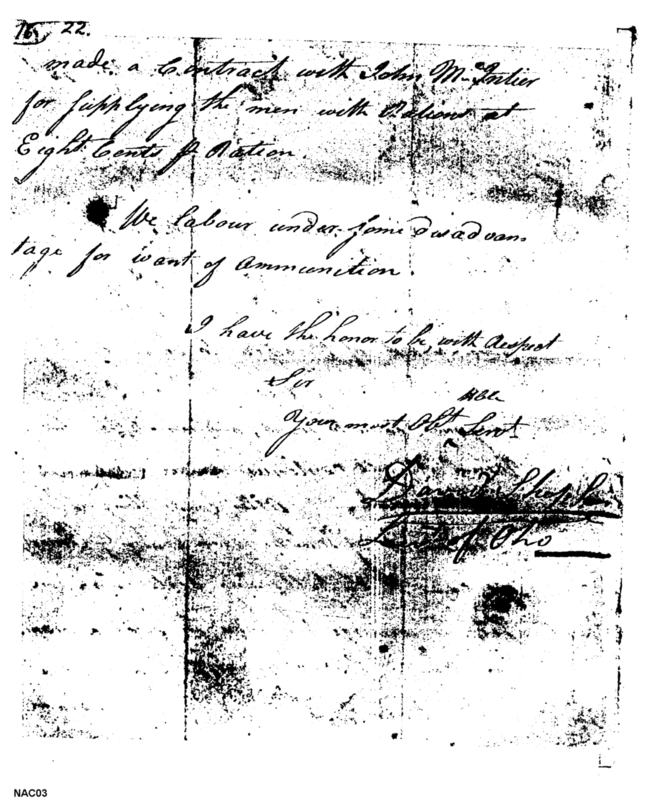 76 22.
made a Contract with John McIntier
for supplying the men with Rations at
Eight Cents pr Ration.
We labour under some disadvan
tage for want of Ammunition.
I have the honor to be, with Respect
Sir
Hble
Your most Obt Servt
David
of
NAC03